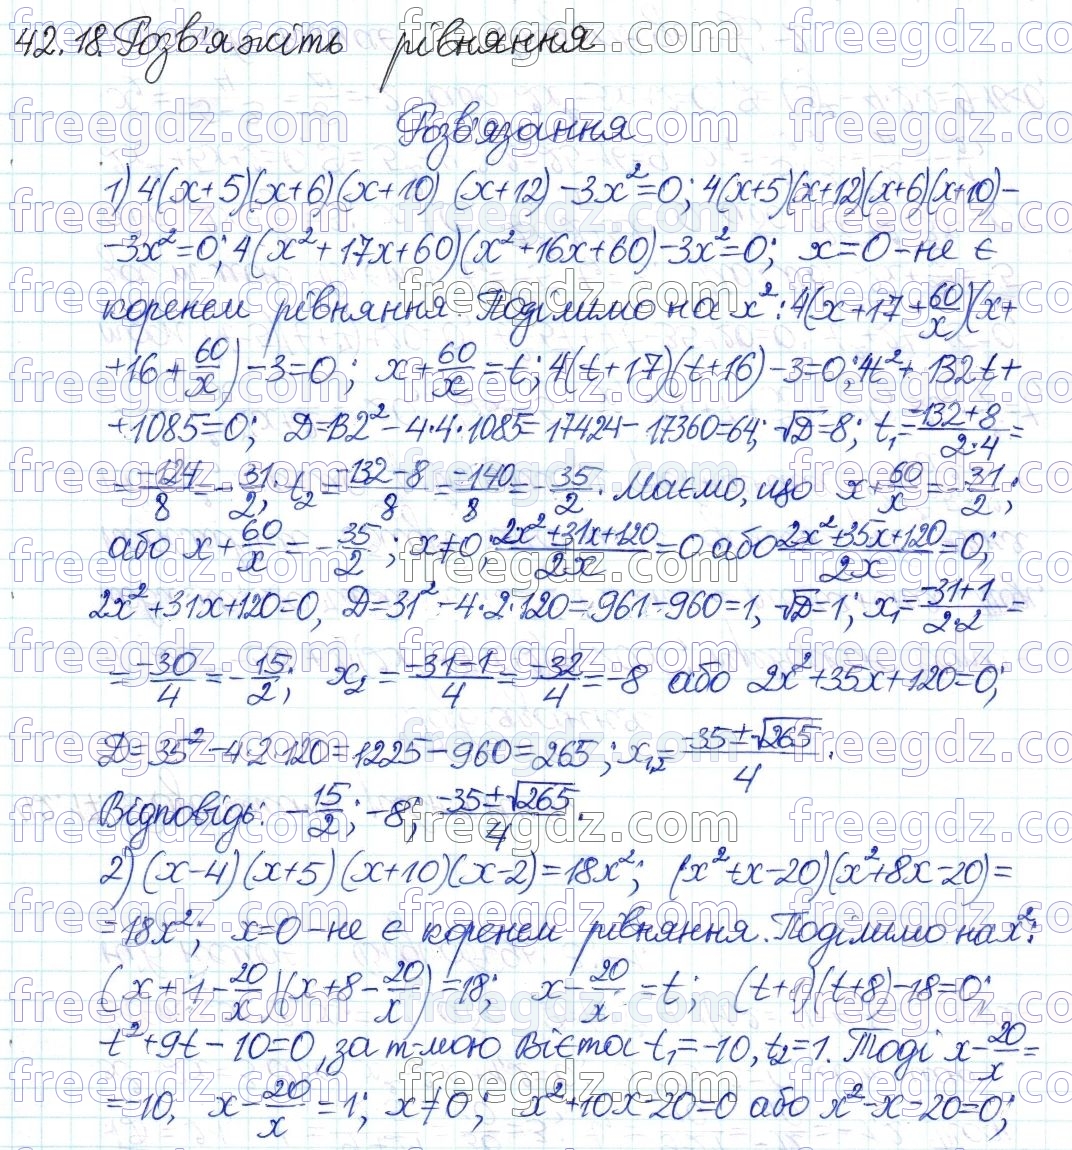 42.18. Розв'яжіть рівняння
Розв'язання
1) 4(x+5)(x+6)(x+10)(x+12)-3x²=0; 4(x+5)(x+12)(x+6)(x+10)-
-3x²=0; 4(x²+17x+60)(x²+16x+60)-3x²=0; x=0-не є
коренем рівняння. Поділимо на x²: 4(x+17+60/x)(x+
+16+60/x)-3=0; x+60/x=t; 4(t+17)(t+16)-3=0; 4t²+132t+
+1085=0; D=132²-4·4·1085=17424-17360=64; √D=8; t₁=(-132+8)/(2·4)=
=-124/8=-31/2; t₂=(-132-8)/8=-140/8=-35/2. Маємо, що x+60/x=-31/2;
або x+60/x=-35/2; x≠0; (2x²+31x+120)/2x=0 або (2x²+35x+120)/2x=0;
2x²+31x+120=0, D=31²-4·2·120=961-960=1, √D=1; x₁=(-31+1)/(2·2)=
=-30/4=-15/2; x₂=(-31-1)/4=-32/4=-8 або 2x²+35x+120=0;
D=35²-4·2·120=1225-960=265; x₁,₂=(-35±√265)/4.
Відповідь: -15/2; -8; (-35±√265)/4.
2) (x-4)(x+5)(x+10)(x-2)=18x²; (x²+x-20)(x²+8x-20)=
=18x²; x=0-не є коренем рівняння. Поділимо на x²:
(x+1-20/x)(x+8-20/x)=18; x-20/x=t; (t+1)(t+8)-18=0;
t²+9t-10=0, за т-мою Вієта t₁=-10, t₂=1. Тоді x-20/x=
=-10, x-20/x=1; x≠0; x²+10x-20=0 або x²-x-20=0;